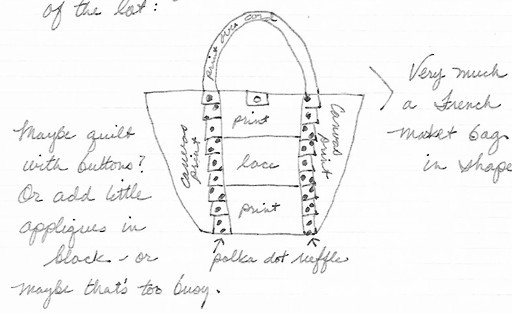 of the lot:
print over cord
print
lace
print
canvas print
Canvas print
polka dot ruffle
Very much
a French
market bag
in shape
Maybe quilt
with buttons?
Or add little
appliques in
black - or
maybe that's too busy.